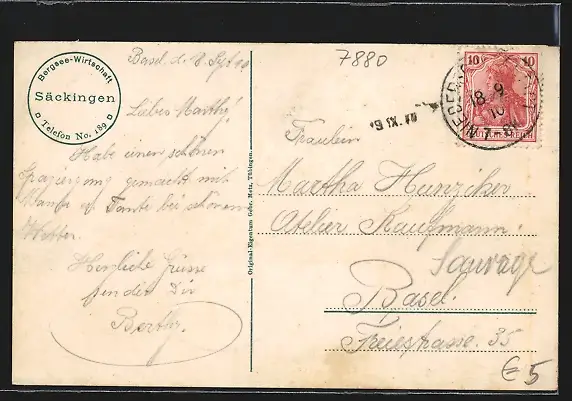 Bergsee-Wirtschaft
Säckingen
Telefon No. 189
Basel d. 8. Sept 10
Liebes Marthy!
Habe einen schönen
Spaziergang gemacht mit
Tante bei schönem
Wetter.
Herzliche Grüsse
sendet Dir
Berthy.
Original-Eigentum Gebr. Metz, Tübingen.
7880
10 10
DEUTSCHES REICH
18 9
10
Fräulein
Martha Hunziker
Atelier Kaufmann.
Sauvage
Basel.
Freiestrasse. 35
€ 5